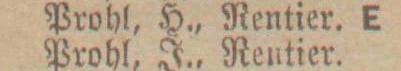 Prohl, H., Rentier. E
Prohl, J., Rentier.